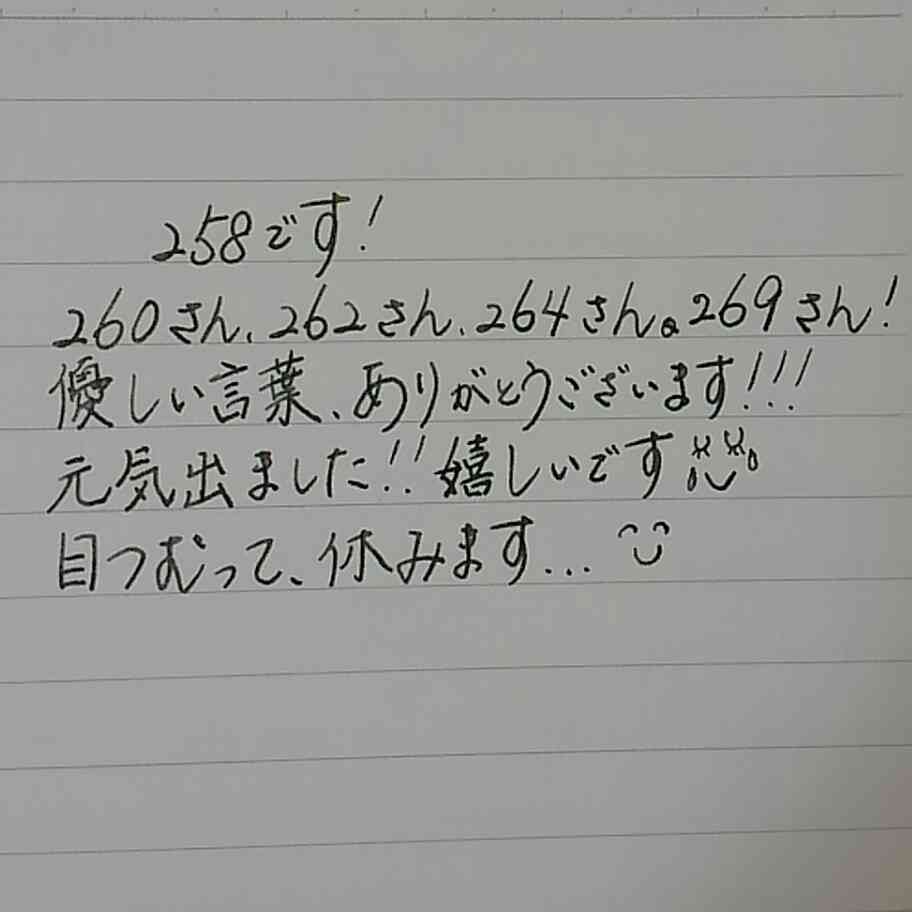 258です!
260さん、262さん、264さん。269さん!
優しい言葉、ありがとうございます!!!
元気出ました!!嬉しいです
目つむって、休みます...